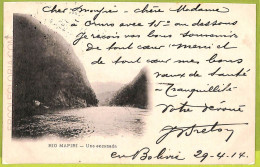 Cher Monsieur — chère Madame
à Oruro avec 15° au dessous
Je reçois vos bons souvenir
de tout cœur merci et
de tout cœur mes bons
vœux de santé
Tranquillité
Votre dévoué
RIO MAPIRI — Una ensenada
en Bolivie 29-4-14.